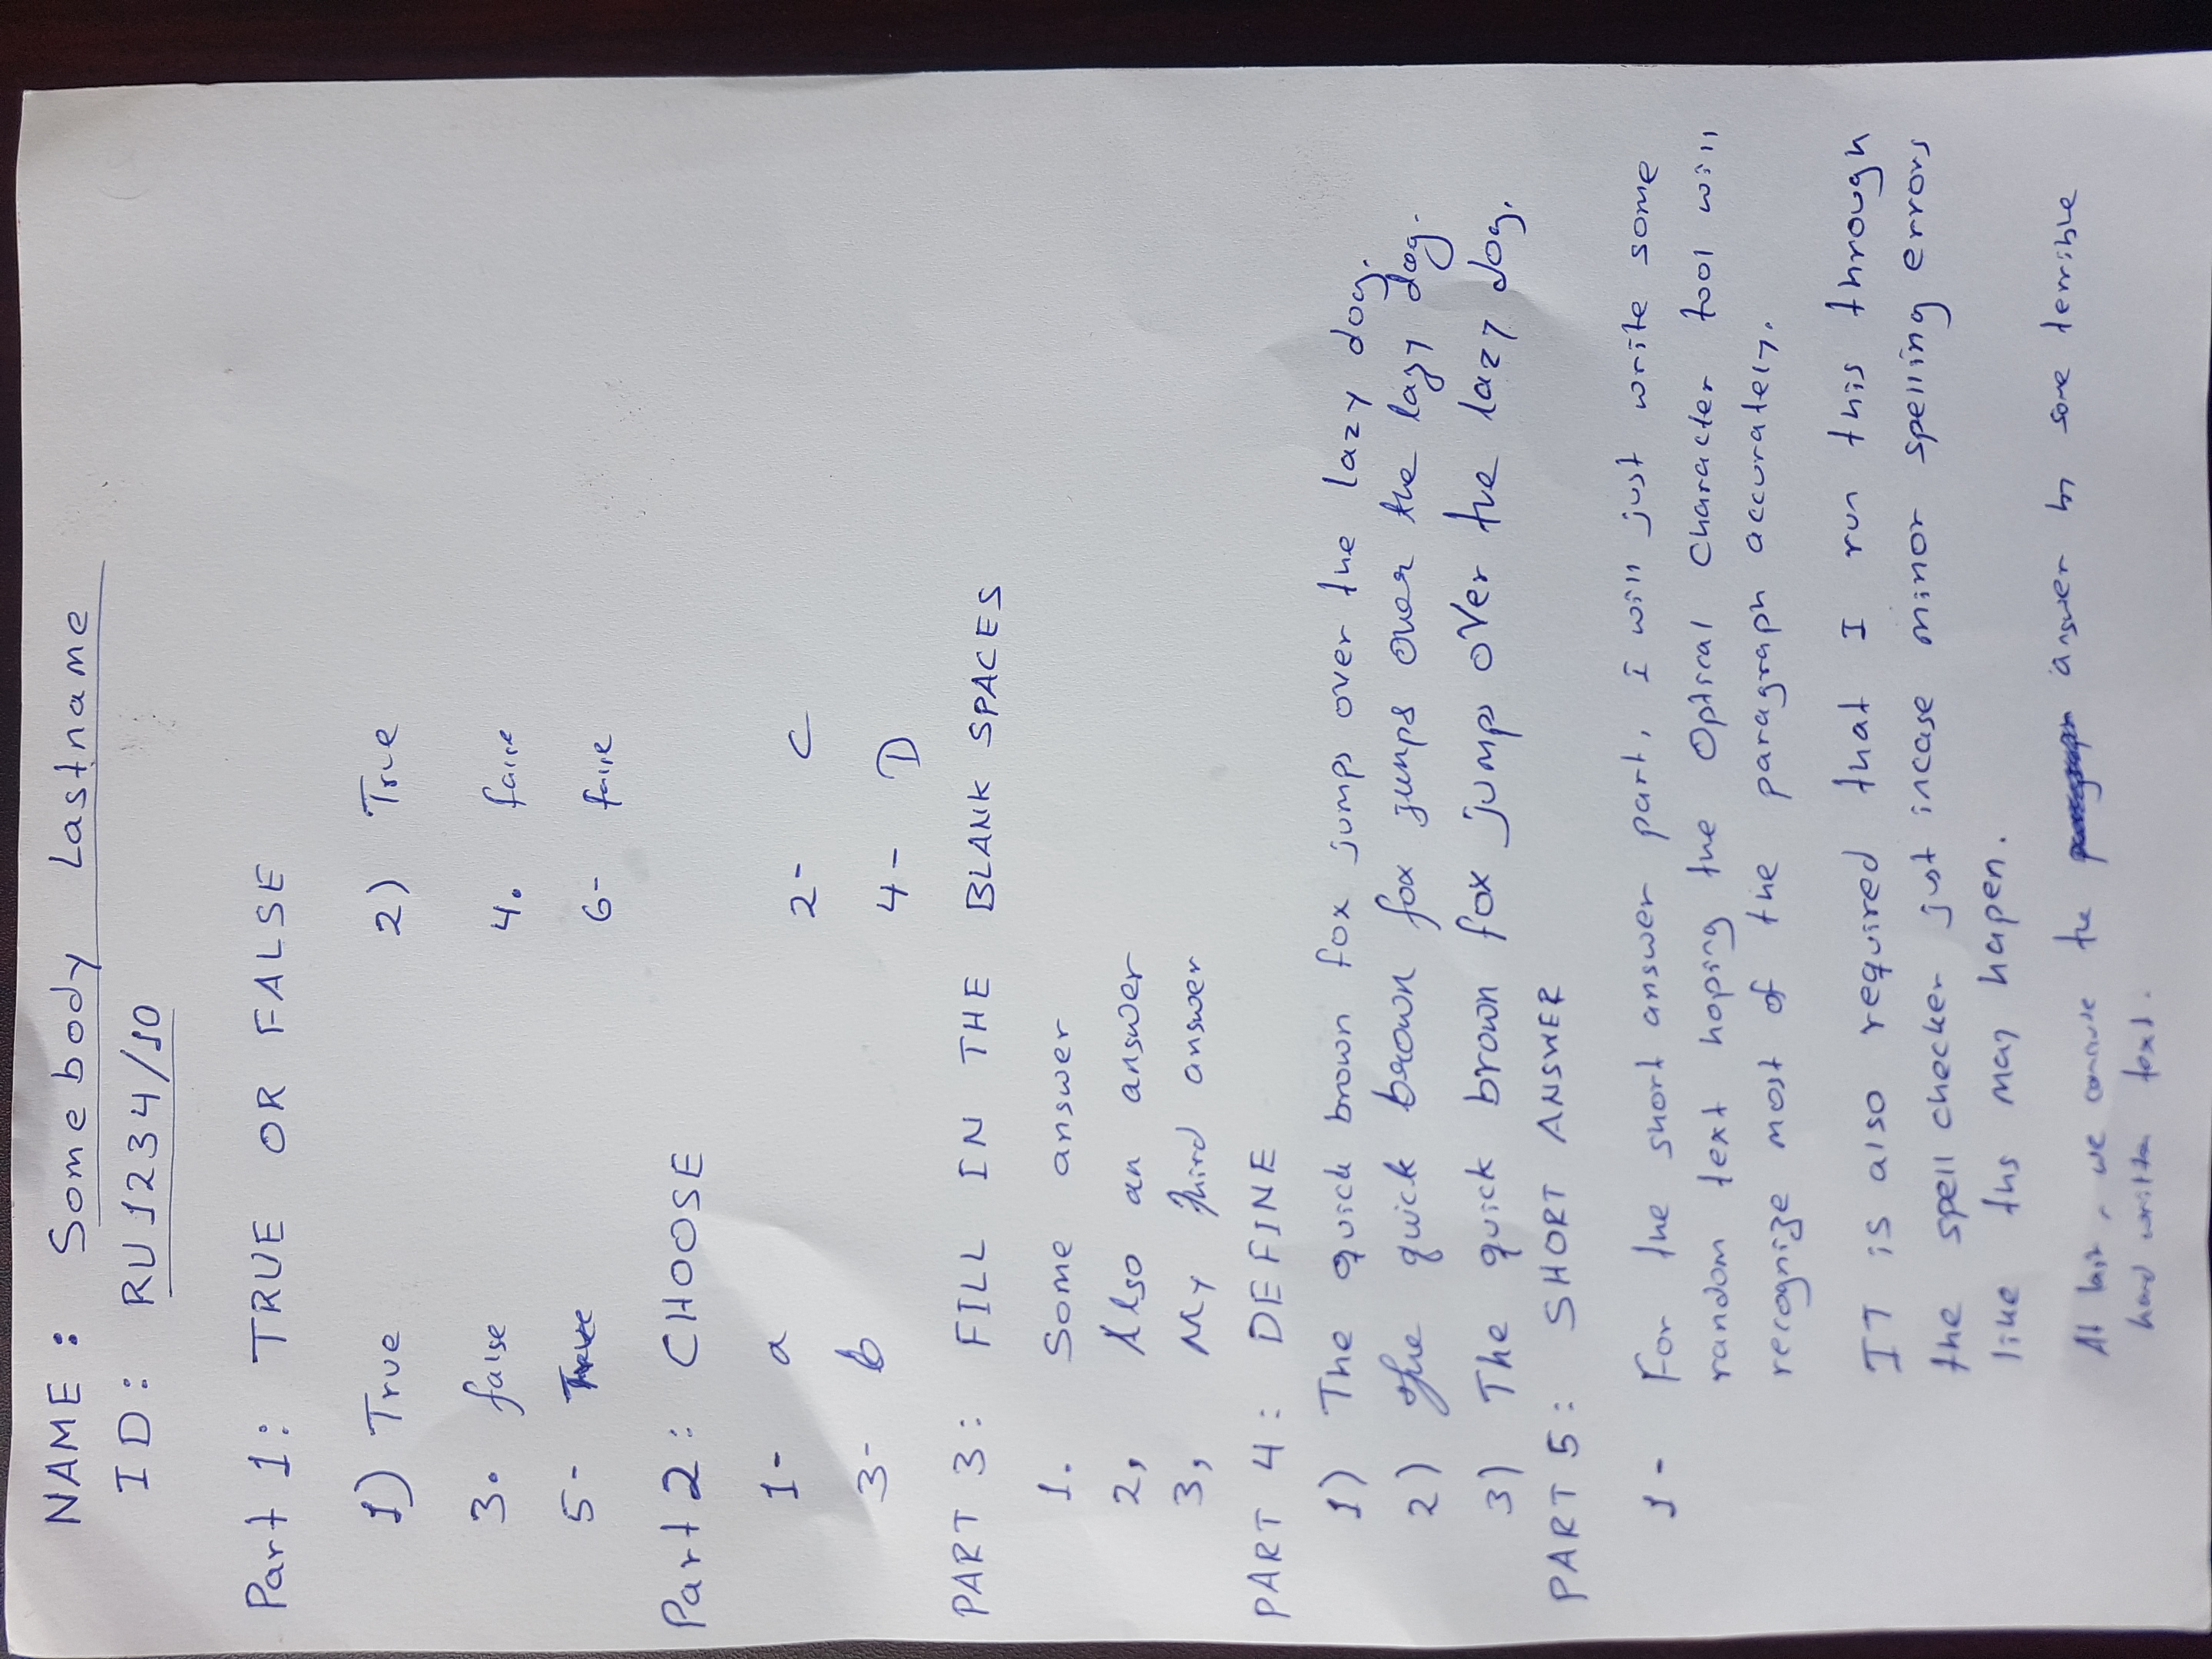 NAME : Somebody Lastname
ID: RU1234/10
Part 1: TRUE OR FALSE
1) True 2) True
3. false 4. false
5- True 6- false
Part 2: CHOOSE
1- a 2- C
3- b 4- D
PART 3: FILL IN THE BLANK SPACES
1. Some answer
2, Also an answer
3, My third answer
PART 4: DEFINE
1) The quick brown fox jumps over the lazy dog.
2) The quick brown fox jumps over the lazy dog.
3) The quick brown fox jumps over the lazy dog.
PART 5: SHORT ANSWER
1- For the short answer part, I will just write some
random text hoping the Optical Character tool will
recognize most of the paragraph accurately.
IT is also required that I run this through
the spell checker just incase minor spelling errors
like ths may hapen.
At last, we conclude the paragraph answer by some terrible
hand written text.